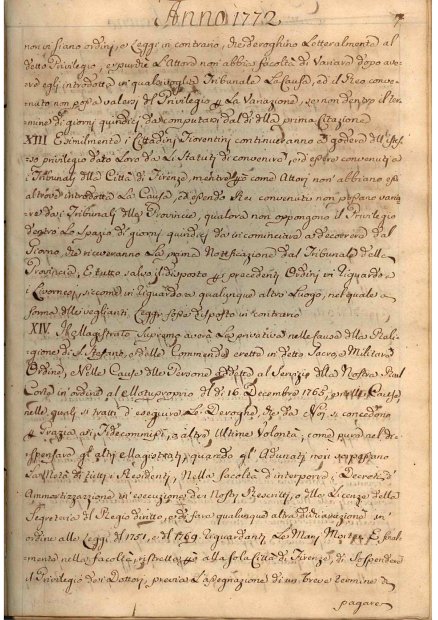 Anno 1772.
non vi siano ordini, o Leggi in contrario, che deroghino Letteralmente al
detto Privilegio, e purche L'Attore non abbia facoltà di Variare dopo aver
egli introdotta in qualsivoglia Tribunale La Causa, ed il Reo conve-
nuto non possa valersi del Privilegio La Variazione, se non dentro il ter-
mine di giorni quindici da computarsi dal dì della prima Citazione
XIII E similmente i Cittadini Fiorentini continueranno a godere dell'istes-
so privilegio dato Loro da Li Statuti di convenire, ed essere convenuti a
i Tribunali della Città di Firenze, mentre come Attori non abbiano essi
altrove introdotta La Causa, ed essendo Rei convenuti non possano varia-
re da i Tribunali delle Provincie, qualora non oppongono il Privilegio
dentro Lo Spazio di giorni quindici da incominciare a decorrere dal
Giorno, che riceveranno La prima Notificazione dal Tribunale della
Provincia, E tutto salvo il disposto i precedenti Ordini in riguardo a
i Livornesi, siccome in riguardo a qualunque altro Luogo, nel quale a
forma delle veglianti Leggi fosse disposto in contrario
XIV. Il Magistrato Supremo averà La privativa nelle cause della Reli-
gione di S. Stefano, e delle Commende erette in detto Sacro, e Militare
Ordine, Nelle Cause delle Persone addette al Servizio della Nostra Real
Corte in ordine al Motuproprio del dì 16. Decembre 1765, nelle Cause
nelle quali si tratti d'eseguire Le Deroghe, che da Noi si concedono
Grazia a i Fidecommissi, o altre Ultime Volontà, come pure nel di-
spensare gli altri Magistrati, quando gli Adunati non
La Metà di tutti i Residenti, Nella facoltà d'interporre Decreto d'
Ammortizzazione in esecuzione dei Nostri Rescritti, o delle Licenze della
Segreteria del Regio diritto, o di fare qualunque altra dichiarazione in
ordine alle Leggi del 1751, e del 1769 Riguardanti Le Mani Morte, E final-
mente nella facoltà, ristretta alla sola Città di Firenze, di Sospendere
il Privilegio dei Dottori, previa L'assegnazione di un breve termine a
pagare